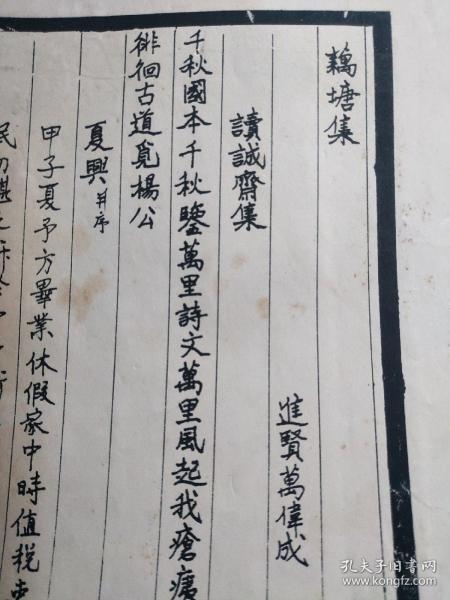 藕塘集
進賢萬偉成
讀誠齋集
千秋國本千秋鑒萬里詩文萬里風起我瘡痍
徘徊古道覓楊公
夏興并序
甲子夏予方畢業休假家中時值税
孔夫子旧书网
www.kongfz.com